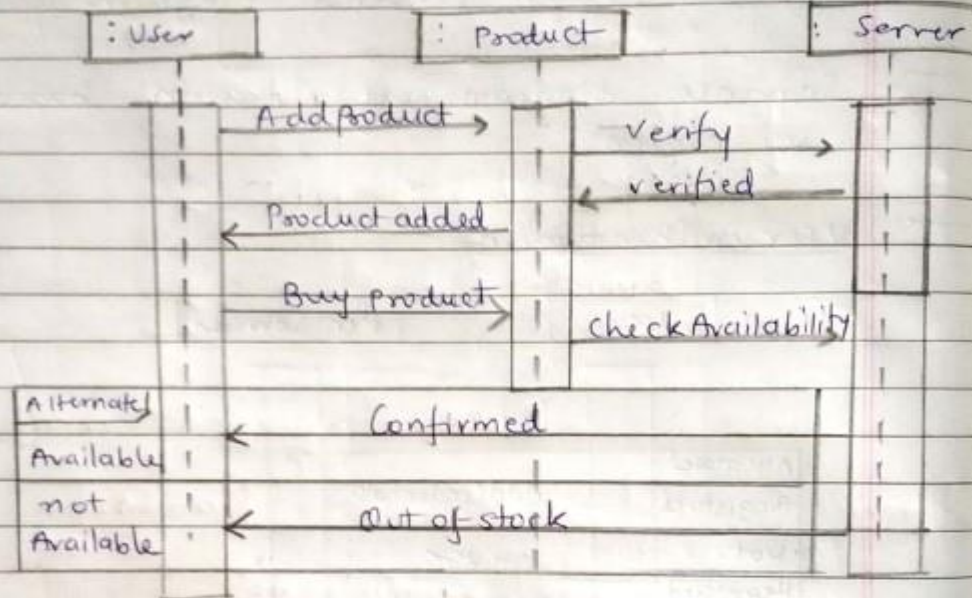 : User
: Product
: Server
Add Product
Verify
verified
Product added
Buy product
check Availability
Alternate
Confirmed
Available
not
Available
Out of stock